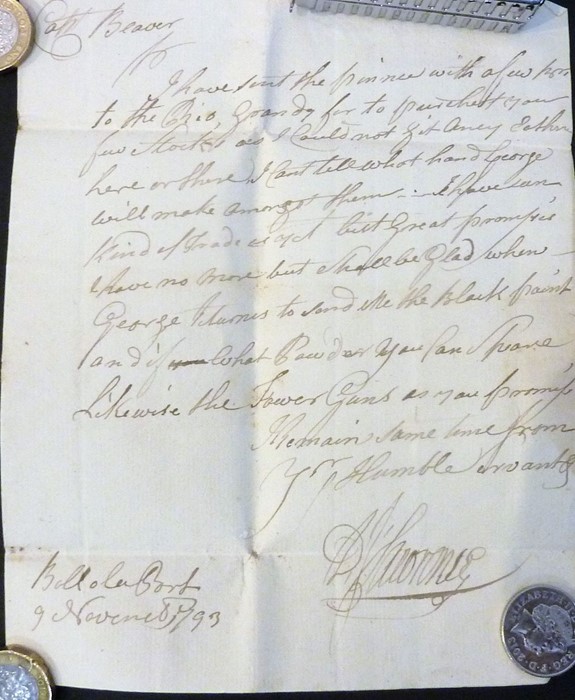 Capt Beaver
I have sent the pinnce with a few
to the Rio, Grandy for to purchest you
few Stocks as I Could not git aney Eather
here or there I Cant tell what hand George
will make amongst them I have
Kind of Trade as yet but Great promis's
I have no more but Shall be Glad when
George to Send Me the Black paint
and if you What Powder You Can Spare
Likewise the Tower Guns as you promis
Remain same time from
Yr Humble Servant
Port
9 93
ELIZABETH II
REG·F·D·